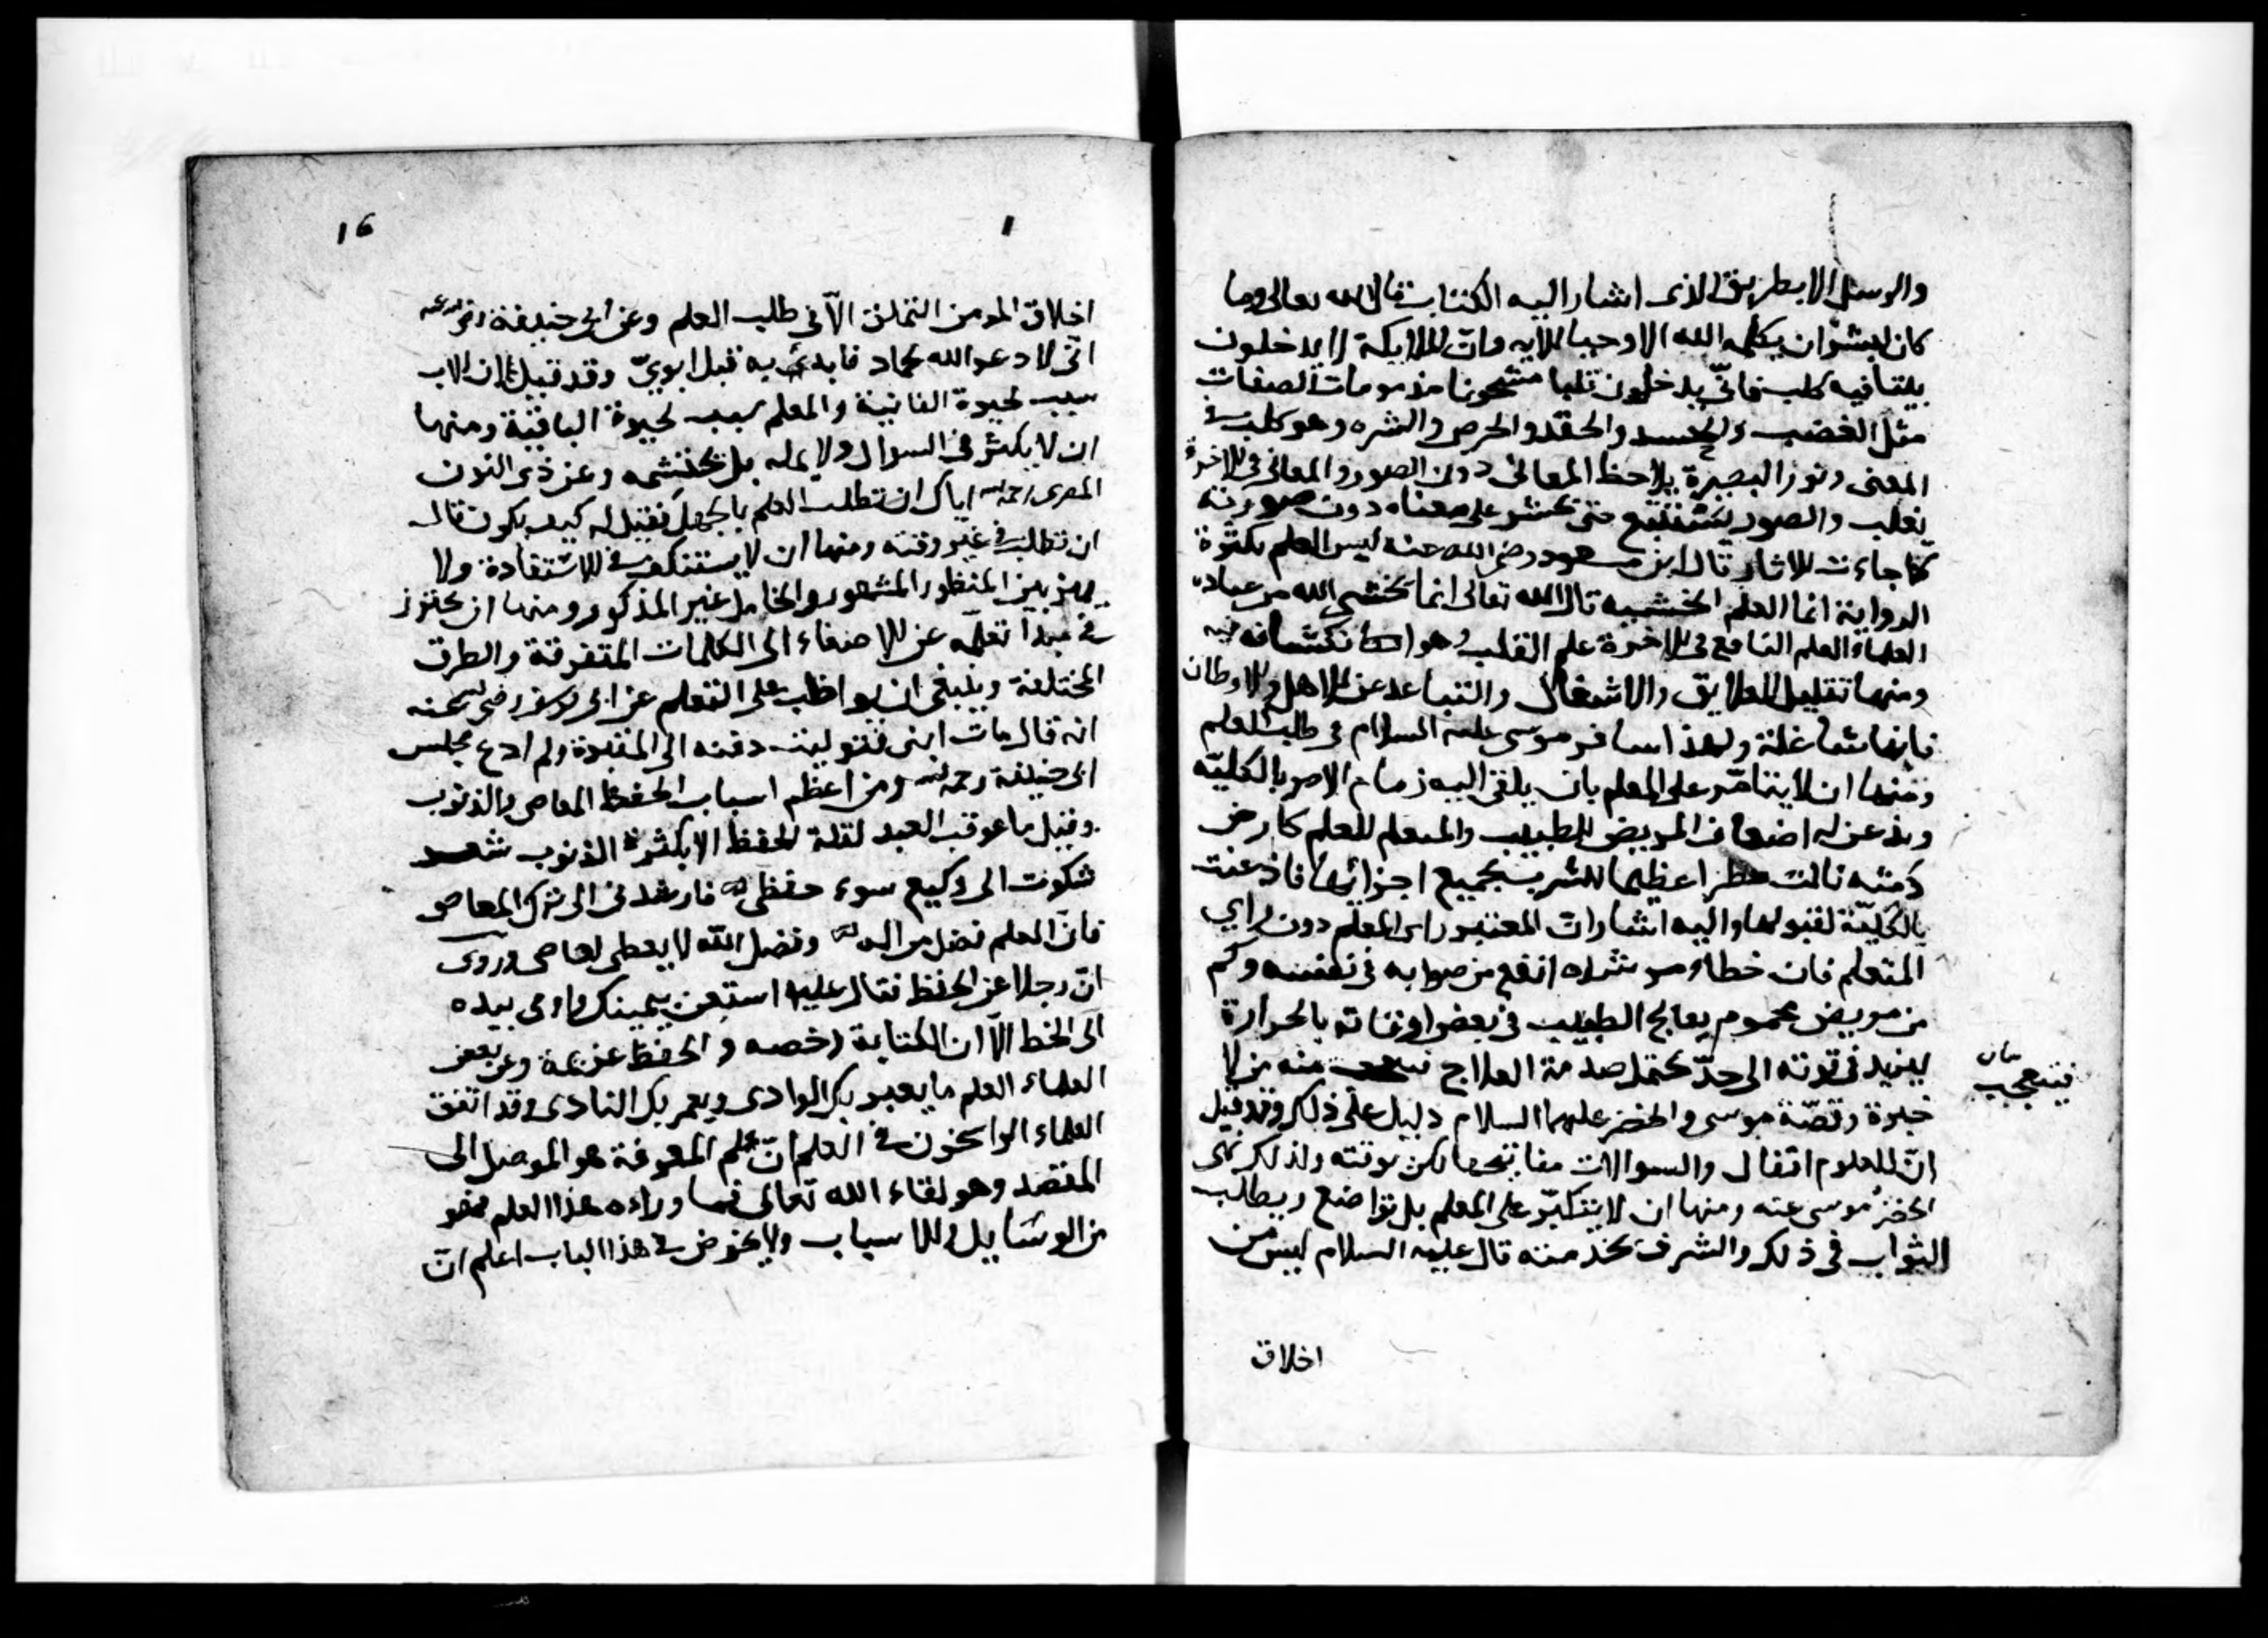 والرسل الا بطريق الذى اشار اليه الكتاب قال الله تعالى وما
كان لبشر ان يكلمه الله الا وحيا الاية وان الملايكة لا يدخلون
بيتا فيه كلب فانى يدخلون قلبا مشحونا مذمومات الصفات
مثل الغضب والحسد والحقد والحرص والشره وهو كلب فى
المعنى ونور البصيرة يلاحظ المعانى دون الصور والمعانى فى الاخرة
تغلب والصور تستتبع حتى تحشر على معناه دون صورته
كما جاءت الاثار قال ابن مسعود رضى الله عنه ليس العلم بكثرة
الرواية انما العلم الخشيه قال الله تعالى انما يخشى الله من عباده
العلماء العلم النافع فى الاخرة علم القلب هو انكشافه
ومنها تقليل العلايق والاشغال والتباعد عن الاهل والاوطان
فانها شاغلة ولهذا سافر موسى عليه السلام فى طلب العلم
ومنها ان لا يتامر على المعلم بان يلقى اليه زمام الامر بالكليه
ويذعن له اضعاف المريض للطبيب والمتعلم للعلم كارض
دمثه نالت مطرا عظيما للشرب بجميع اجزائها فاذعنت
بالكلية لقبولها واليه اشارات المعتبر راى المعلم دون راى
المتعلم فان خطاء مرشده انفع من صوابه فى نفسه وكم
من مريض محموم يعالج الطبيب فى بعض اوقاته بالحرارة
ليزيد فى قوته الى حد يحتمل صدمة العلاج منه من لا
فيتعجب
خبرة وقصة موسى والخضر عليهما السلام دليل على ذلك وقد قيل
ان للعلوم اقفال والسوالات مفاتيحها لكن بوقته ولذلك نهى
الخضر موسى عنه ومنها ان لا يتكبر على المعلم بل يتواضع ويطلب
الثواب فى ذلك والشرف بخدمته قال عليه السلام ليس من
اخلاق
16
اخلاق المومن التملق الا فى طلب العلم وعن ابى حنيفة
انى لا دعو الله لحماد فابدئ به قبل ابوى وقد قيل ان الاب
سبب لحيوة الفانية والمعلم سبب لحيوة الباقية ومنها
ان لا يكثر فى السوال ولا يمله بل يحتشمه وعن ذى النون
المصرى رحمه الله اياك ان تطلب العلم بالجهل فقيل له كيف يكون قال
ان تطلب فى غير وقته ومنها ان لا يستنكف فى الاستفادة ولا
يميز بين المنظور المشهور والخامل غير المذكور ومنها ان يحترز
فى مبدا تعلمه عن الاصغاء الى الكلمات المتفرقة والطرق
المختلفة وينبغى ان يواظب على التعلم عن ابى يوسف رضى الله عنه
انه قال مات ابنى دفنه الى المقبرة ولم ادع مجلس
ابى حنيفة رحمه الله ومن اعظم اسباب الحفظ المعاصى والذنوب
وقيل ما عوقب العبد لقلة الحفظ الا بكثرة الذنوب شعر
شكوت الى وكيع سوء حفظى فارشدنى الى ترك المعاصى
فان العلم فضل من اله وفضل الله لا يعطى لعاصى وروى
ان رجلا عن الحفظ فقال عليه استعن بيمينك واومى بيده
الى الخط الا ان الكتابة رخصه والحفظ عزيمة وعن بعض
العلماء العلم ما يعبر بك الوادى ويعمر بك النادى وقد اتفق
العلماء الراسخون فى العلم ان علم المعرفة هو الموصل الى
المقصد وهو لقاء الله تعالى فما وراءه هذا العلم فهو
من الوسايل والاسباب ولا يخوض فى هذا الباب اعلم ان